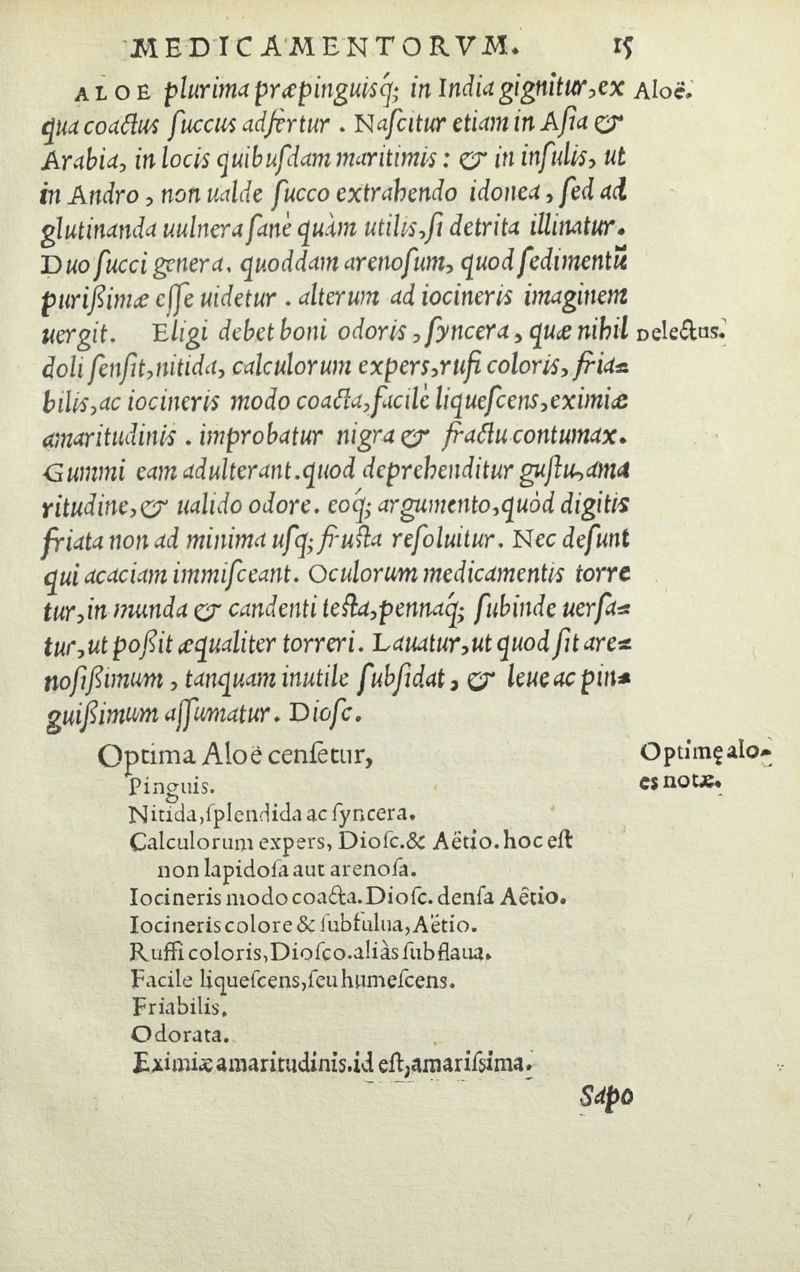 MEDICAMENTORVM. 15
ALOE plurima præpinguisq; in India gignitur, ex Aloë.
qua coactus ſuccus adfertur . Naſcitur etiam in Aſia &
Arabia, in locis quibuſdam maritimis : & in inſulis, ut
in Andro , non ualde ſucco extrahendo idonea , ſed ad
glutinanda uulnera ſanè quàm utilis, ſi detrita illinatur.
Duo ſucci genera, quoddam arenoſum, quod ſedimentū
purißimæ eſſe uidetur . alterum ad iocineris imaginem
uergit. Eligi debet boni odoris , ſyncera , quæ nihil Delectus.
doli ſenſit, nitida, calculorum expers, rufi coloris, fria=
bilis, ac iocineris modo coacta, facilè liqueſcens, eximiæ
amaritudinis . improbatur nigra & fractu contumax.
Gummi eam adulterant. quod deprehenditur guſtu, ama
ritudine, & ualido odore. eoq́; argumento, quòd digitis
friata non ad minima uſq; fruſta reſoluitur. Nec deſunt
qui acaciam immiſceant. Oculorum medicamentis torre
tur, in munda & candenti teſta, pennaq́; ſubinde uerſa=
tur, ut poßit æqualiter torreri. Lauatur, ut quod ſit are=
noſißimum , tanquam inutile ſubſidat , & leue ac pin=
guißimum aſſumatur. Dioſc.
Optima Aloë cenſetur, Optimę alo-
Pinguis. es notæ.
Nitida, ſplendida ac ſyncera.
Calculorum expers, Dioſc. & Aëtio. hoc eſt
non lapidoſa aut arenoſa.
Iocineris modo coacta. Dioſc. denſa Aëtio.
Iocineris colore & ſubfulua, Aëtio.
Ruffi coloris, Dioſco. aliàs ſubflaua.
Facile liqueſcens, ſeu humeſcens.
Friabilis.
Odorata.
Eximiæ amaritudinis. id eſt, amariſsima.
Sapo